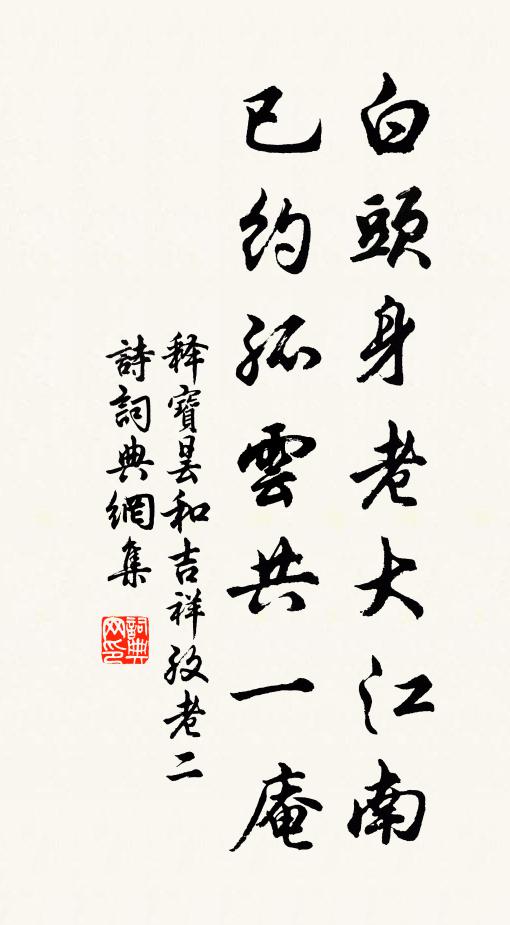 白頭身老大江南
已約孤雲共一庵
释寶曇和吉祥孜老二
詩詞典網集
詞典网印